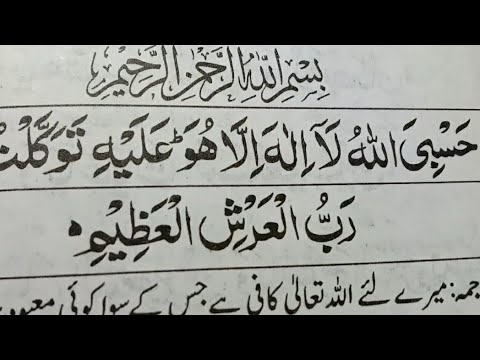 بِسْمِ اللهِ الرَّحْمٰنِ الرَّحِيْمِ
حَسْبِىَ اللهُ لَآ اِلٰهَ اِلَّا هُوَ ؕ عَلَيْهِ تَوَكَّلْتُ
رَبُّ الْعَرْشِ الْعَظِيْمِ
جمہ: میرے لئے اللہ تعالیٰ کافی ہے جس کے سوا کوئی